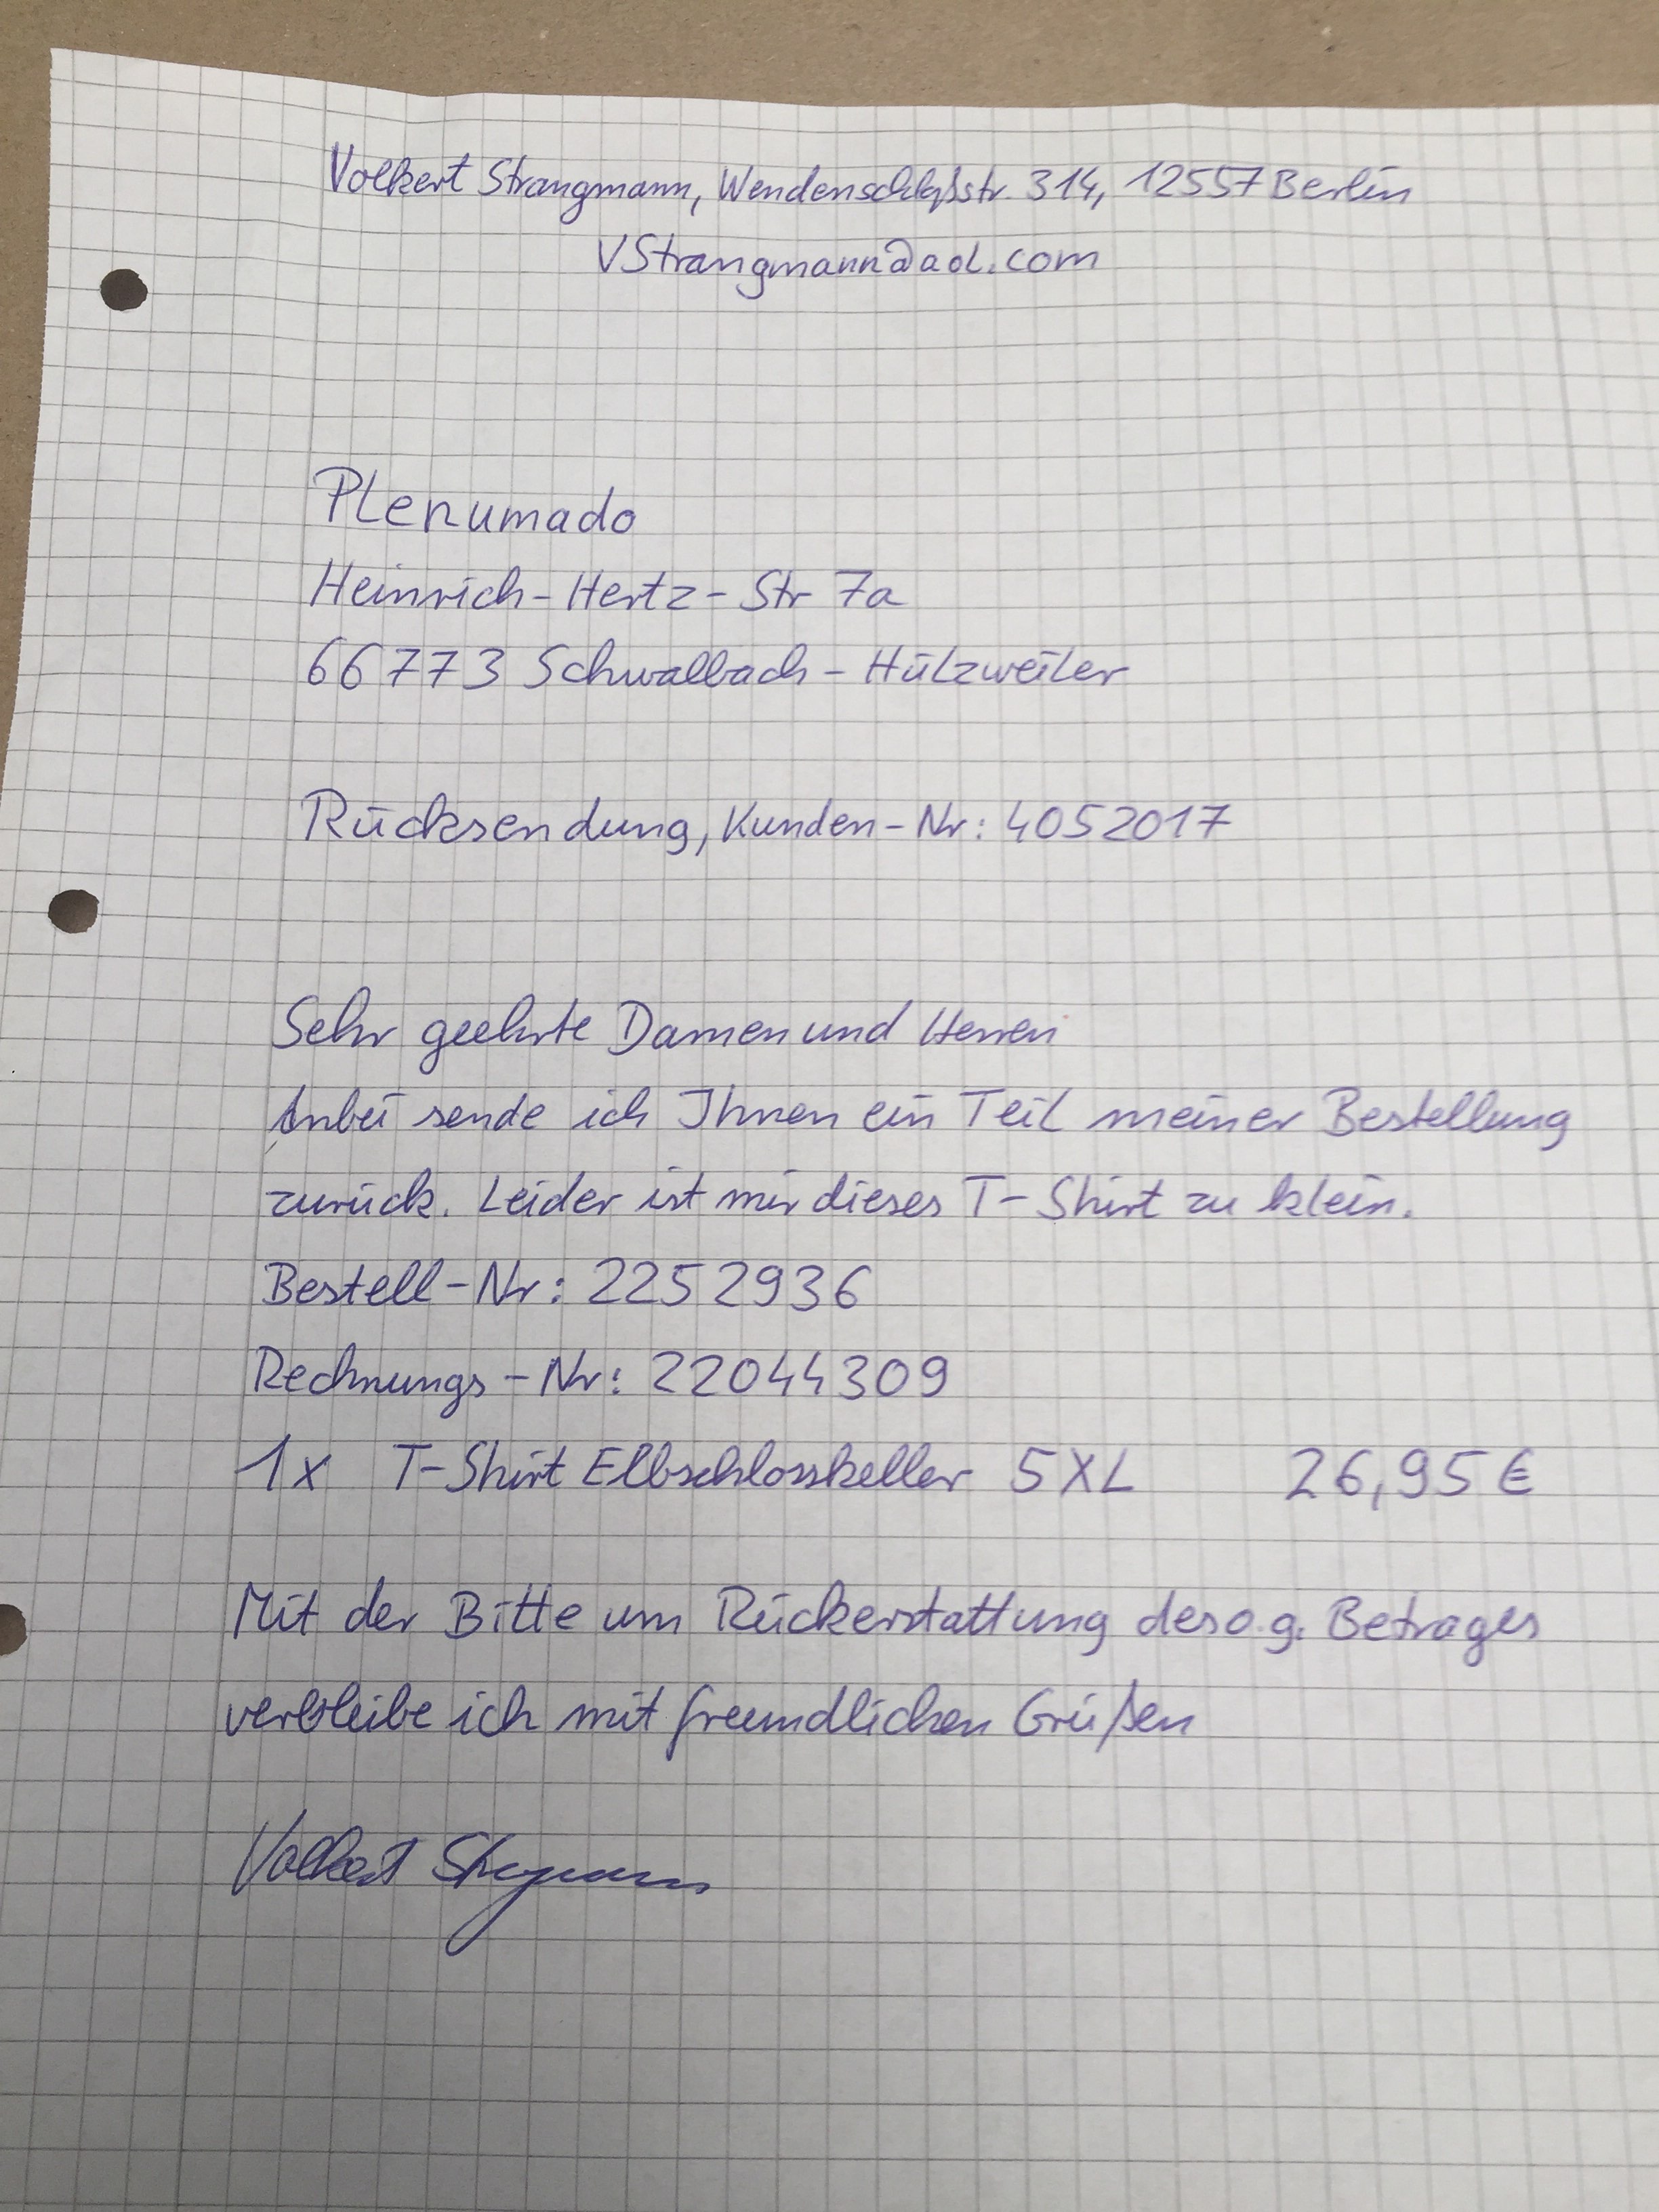 Volkert Strangmann, Wendenschloßstr. 314, 12557 Berlin
VStrangmann@aol.com
Plenumado
Heinrich-Hertz-Str 7a
66773 Schwalbach-Hülzweiler
Rücksendung, Kunden-Nr: 4052017
Sehr geehrte Damen und Herren
Anbei sende ich Ihnen ein Teil meiner Bestellung
zurück. Leider ist mir dieses T-Shirt zu klein.
Bestell-Nr: 2252936
Rechnungs-Nr: 22044309
1x T-Shirt Elbschlosskeller 5XL 26,95 €
Mit der Bitte um Rückerstattung des o.g. Betrages
verbleibe ich mit freundlichen Grüßen
Volkert Strangmann